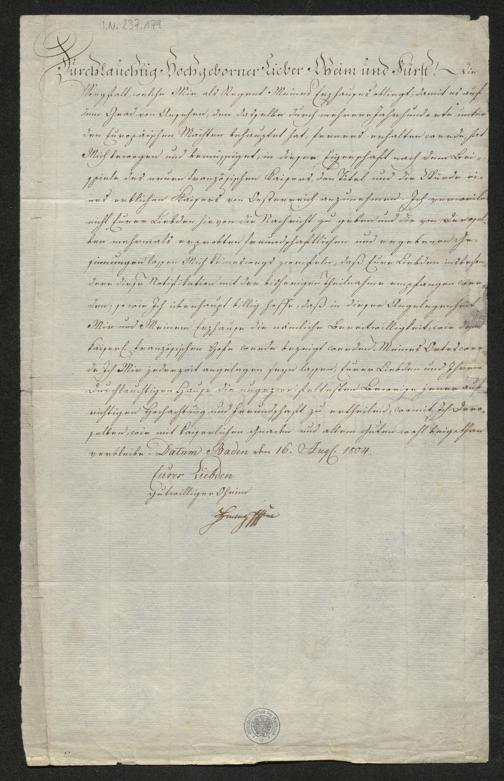 I.N. 237.179
Durchlauchtig Hochgeborner Lieber Oheim und Fürst! Die
Sorgfalt, welche Mir als Regent Meines Erzhauses obliegt, damit es auf
dem Grad von Ansehen, den dasselbe durch mehrere Jahrhunderte unter
den Europäischen Mächten behauptet hat, ferners erhalten werde, hat
Mich bewogen und bemüssiget, in dieser Eigenschaft nach dem Bei-
spiele des neuen französischen Kaisers, den Titel und die Würde ei-
nes erblichen Kaisers von Oesterreich anzunehmen. Ich
nicht Eurer Liebden hievon die Nachricht zu geben und die von Densel-
ben mehrmals erprobten freundschaftlichen und ergebenen Ge-
sinnungen lassen Mich keinerdings zweifeln, daß Eure Liebden insbeson-
dere diese Notifikation mit der bisherigen Theilnahme empfangen wer-
den, so wie Ich überhaupt billig hoffe, daß in dieser Angelegenheit
Mir und Meinem Erzhause die nämliche Bereitwilligkeit, wie dem
kaiserl. französischen Hofe werde bezeigt werden. Meines Ortes wer-
de ich Mir jederzeit angelegen seyn lassen, Eurer Liebden und Ihrem
Durchlauchtigen Hause die ungezweifeltesten Beweise jener auf-
richtigen Hochachtung und Freundschaft zu ertheilen, womit ich Den-
selben, wie mit kaiserlichen Gnaden und allem Guten wohl beigethan
verbleibe. Datum Baden den 16. Augst. 1804.
Eurer Liebden
gutwilliger Oheim
Franz